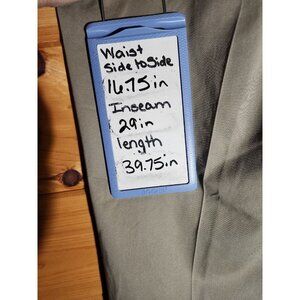 Waist
Side to Side
16.75in
Inseam
29in
length
39.75in